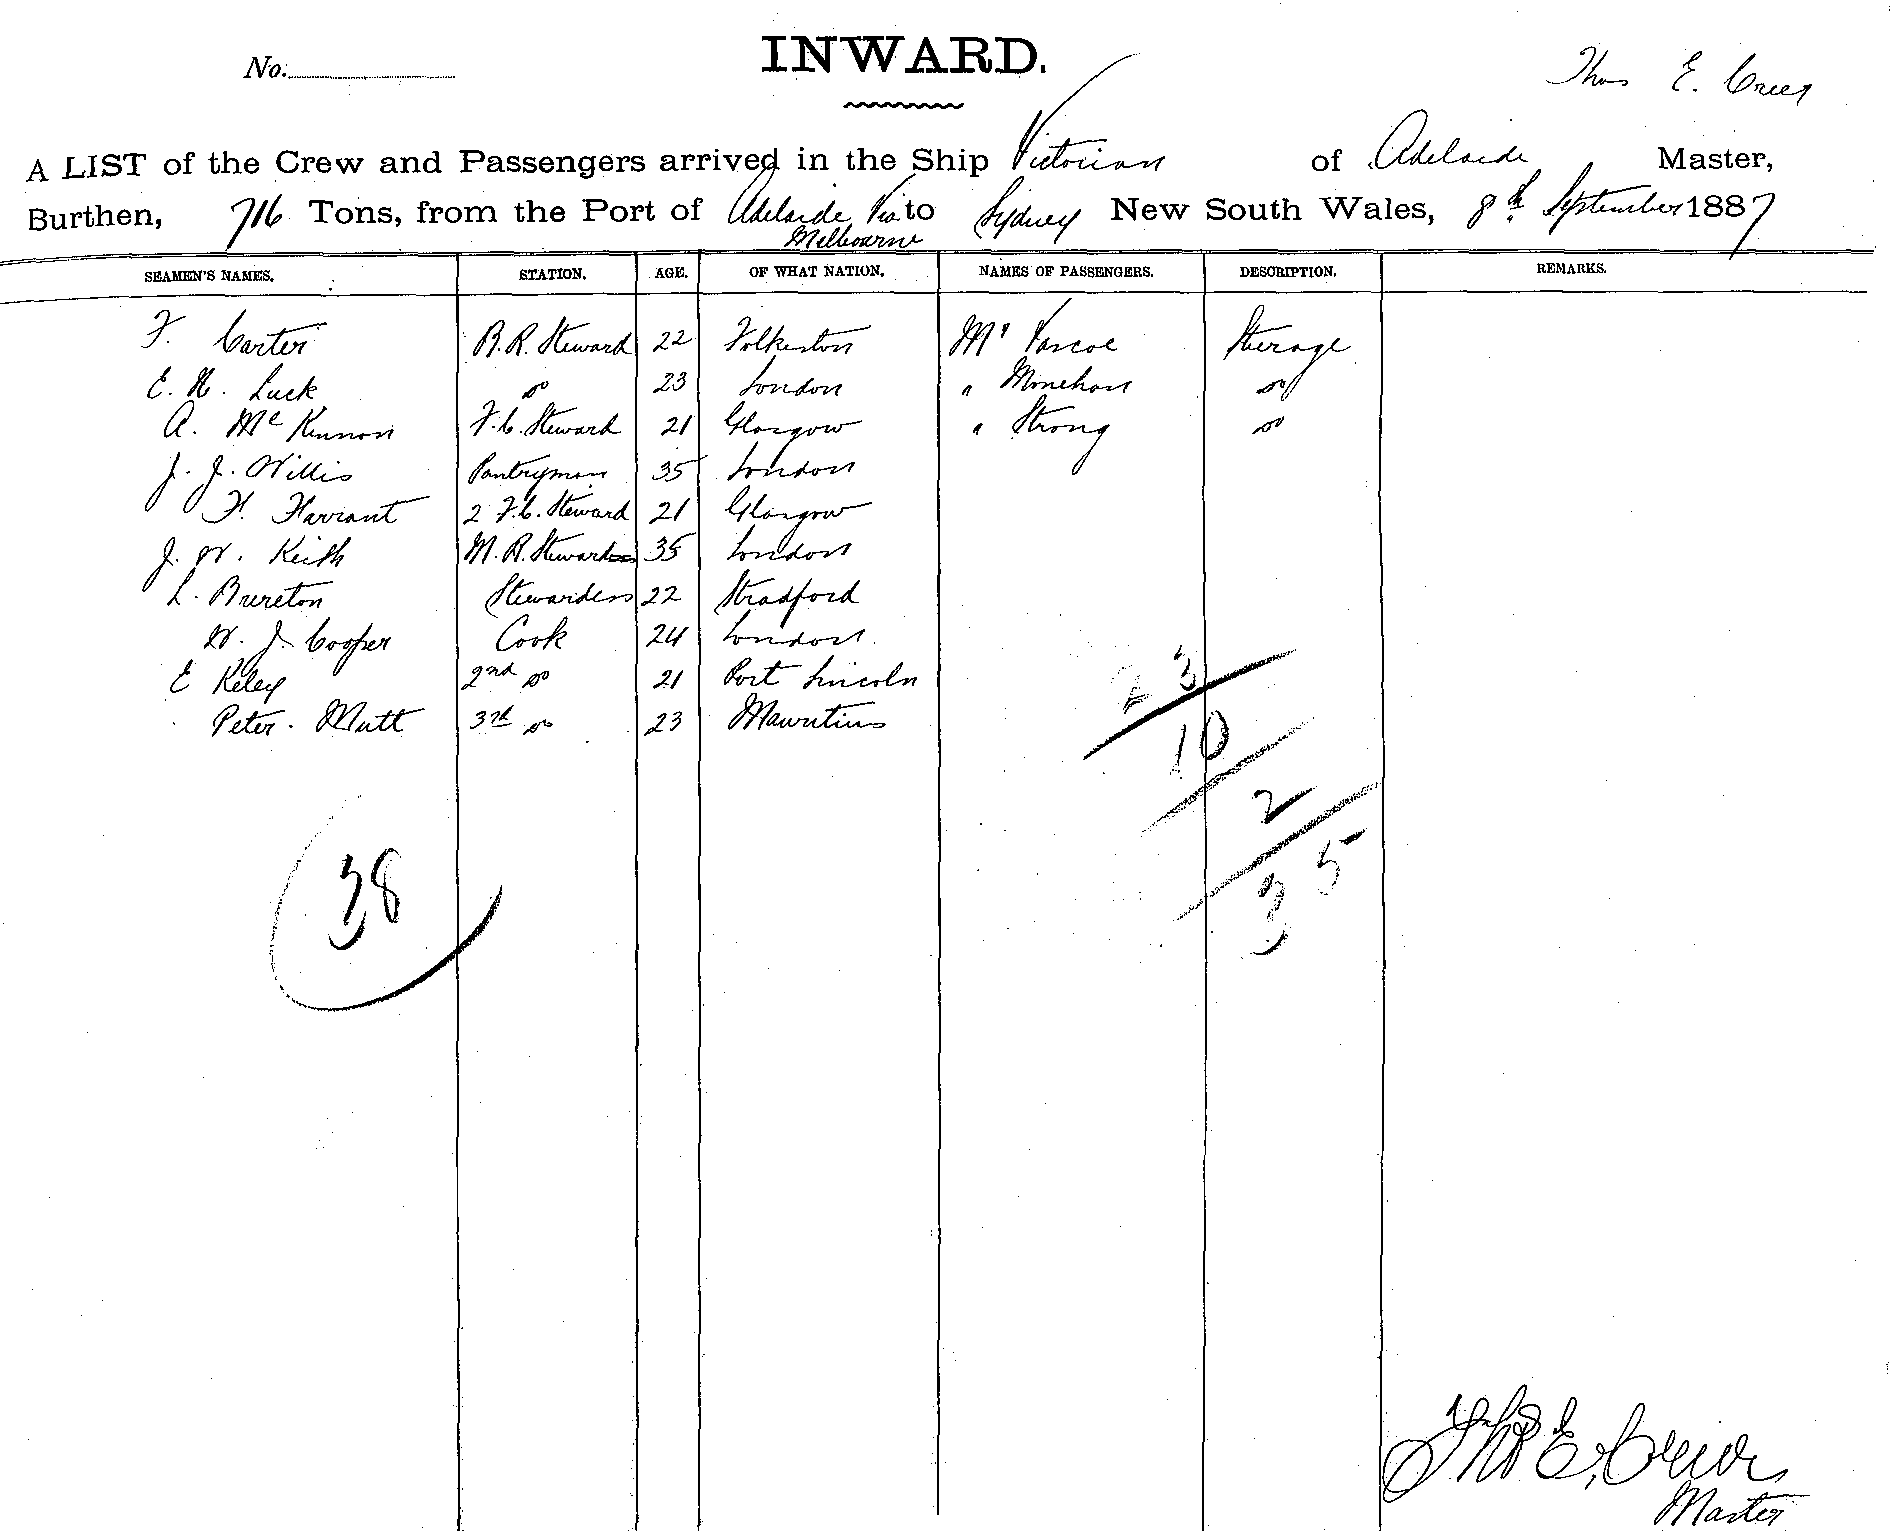 No.
INWARD.
Thos E. Creer
A LIST of the Crew and Passengers arrived in the Ship Victorian of Adelaide Master,
Burthen, 716 Tons, from the Port of Adelaide Via Melbourne to Sydney New South Wales, 8th September 1887
SEAMEN'S NAMES. STATION. AGE. OF WHAT NATION. NAMES OF PASSENGERS. DESCRIPTION. REMARKS.
F. Carter B.R. Steward 22 Folkeston Mr Pascoe Sterage
E. H. Luck do 23 London " Monehan do
A. McKinnon F.C. Steward 21 Glasgow " Strong do
J. J. Willis Pantryman 35 London
H. Harrant 2 F.C. Steward 21 Glasgow
J. W. Keith M.R. Steward 35 London
L. Brereton Stewardess 22 Stradford
W. J. Cooper Cook 24 London
E Keley 2nd do 21 Port Lincoln
Peter. Mutt 3rd do 23 Mauritius
23
10
2
38
35
Thos E. Creer
Master